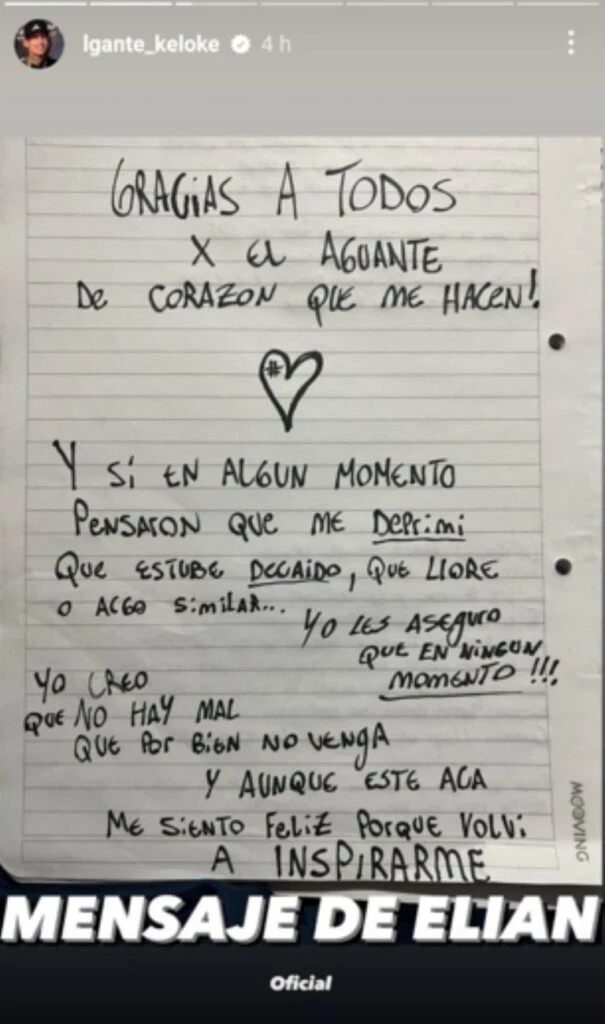 lgante_keloke 4 h
GRACIAS A TODOS
X EL AGUANTE
DE CORAZON QUE ME HACEN!
#
Y Si EN ALGUN MOMENTO
PENSARON QUE ME DEPRiMi
QUE ESTUBE DECAIDO, QUE LLORE
O ALGO SiMiLAR...
YO LES ASEGURO
QUE EN NiNGUN
MOMENTO !!!
YO CREO
QUE NO HAY MAL
QUE POR BiEN NO VENGA
Y AUNQUE ESTE ACA
ME SiENTO FELiZ PORQUE VOLVi
A INSPIRARME
MOOVING
MENSAJE DE ELIAN
Oficial